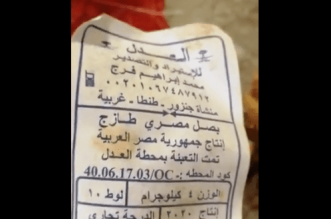 العدل
للإستيراد والتصدير
محمد إبراهيم فرج
٠٠٢٠١٠٩٧٤٨٧٩١٢
منشأة جنزور - طنطا - غربية
بصل مصري طازج
إنتاج جمهورية مصر العربية
تمت التعبئة بمحطة العدل
كود المحطة: 40.06.17.03/OC
الوزن ٤ كيلوجرام
لوط ١٠
إنتاج ٢٠٢٠
الدرجة تجاري